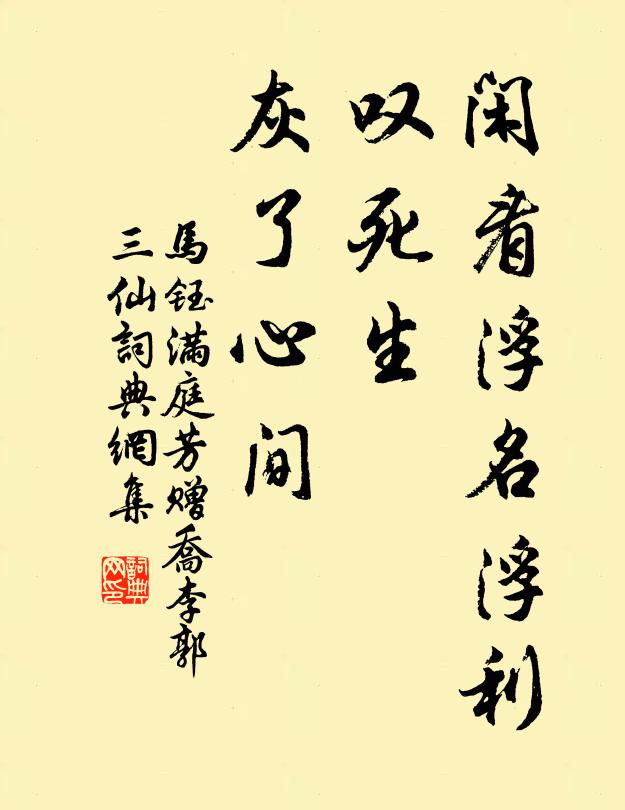 闲看浮名浮利
叹死生
灰了心间
馬钰满庭芳赠喬李郭
三仙詞典網集
詞典
网印